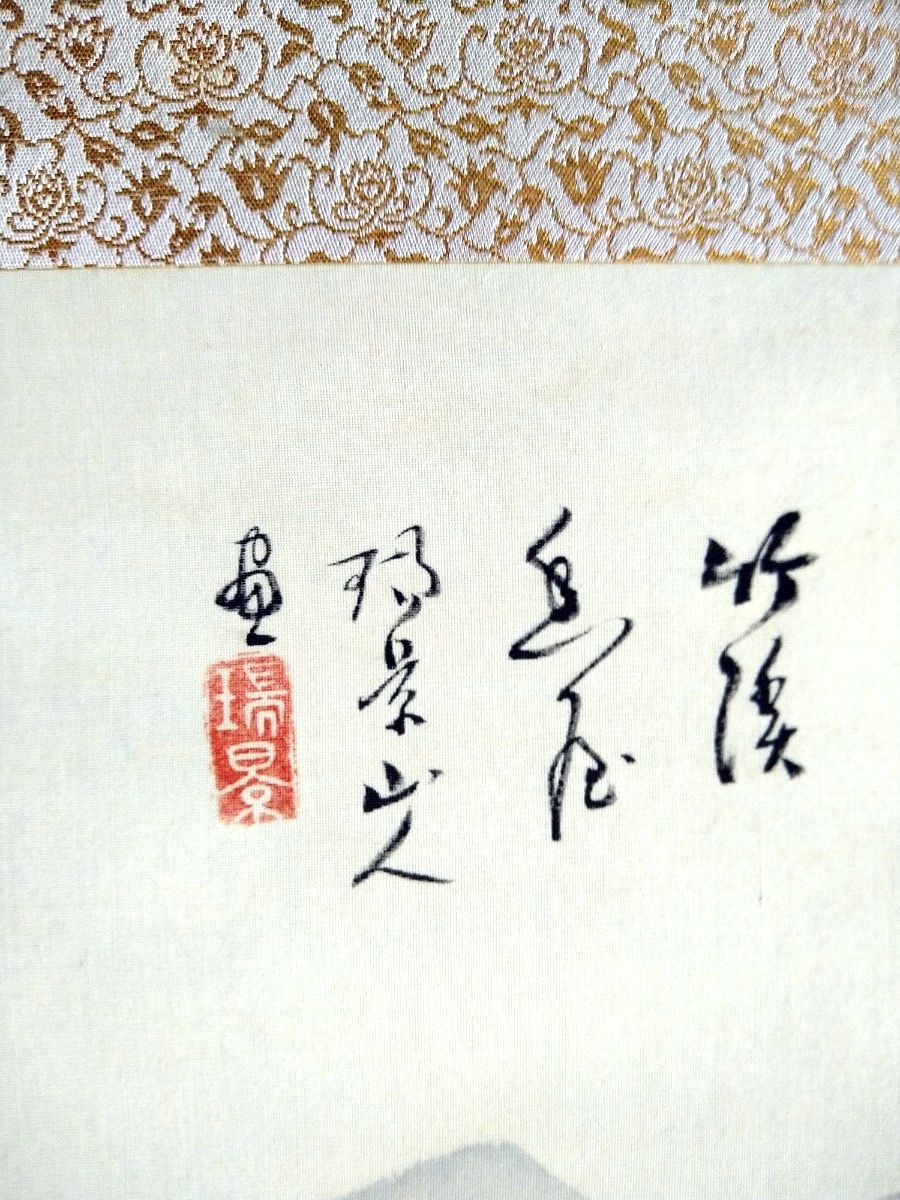 竹溪
屋
瑞景山人
画
瑞景